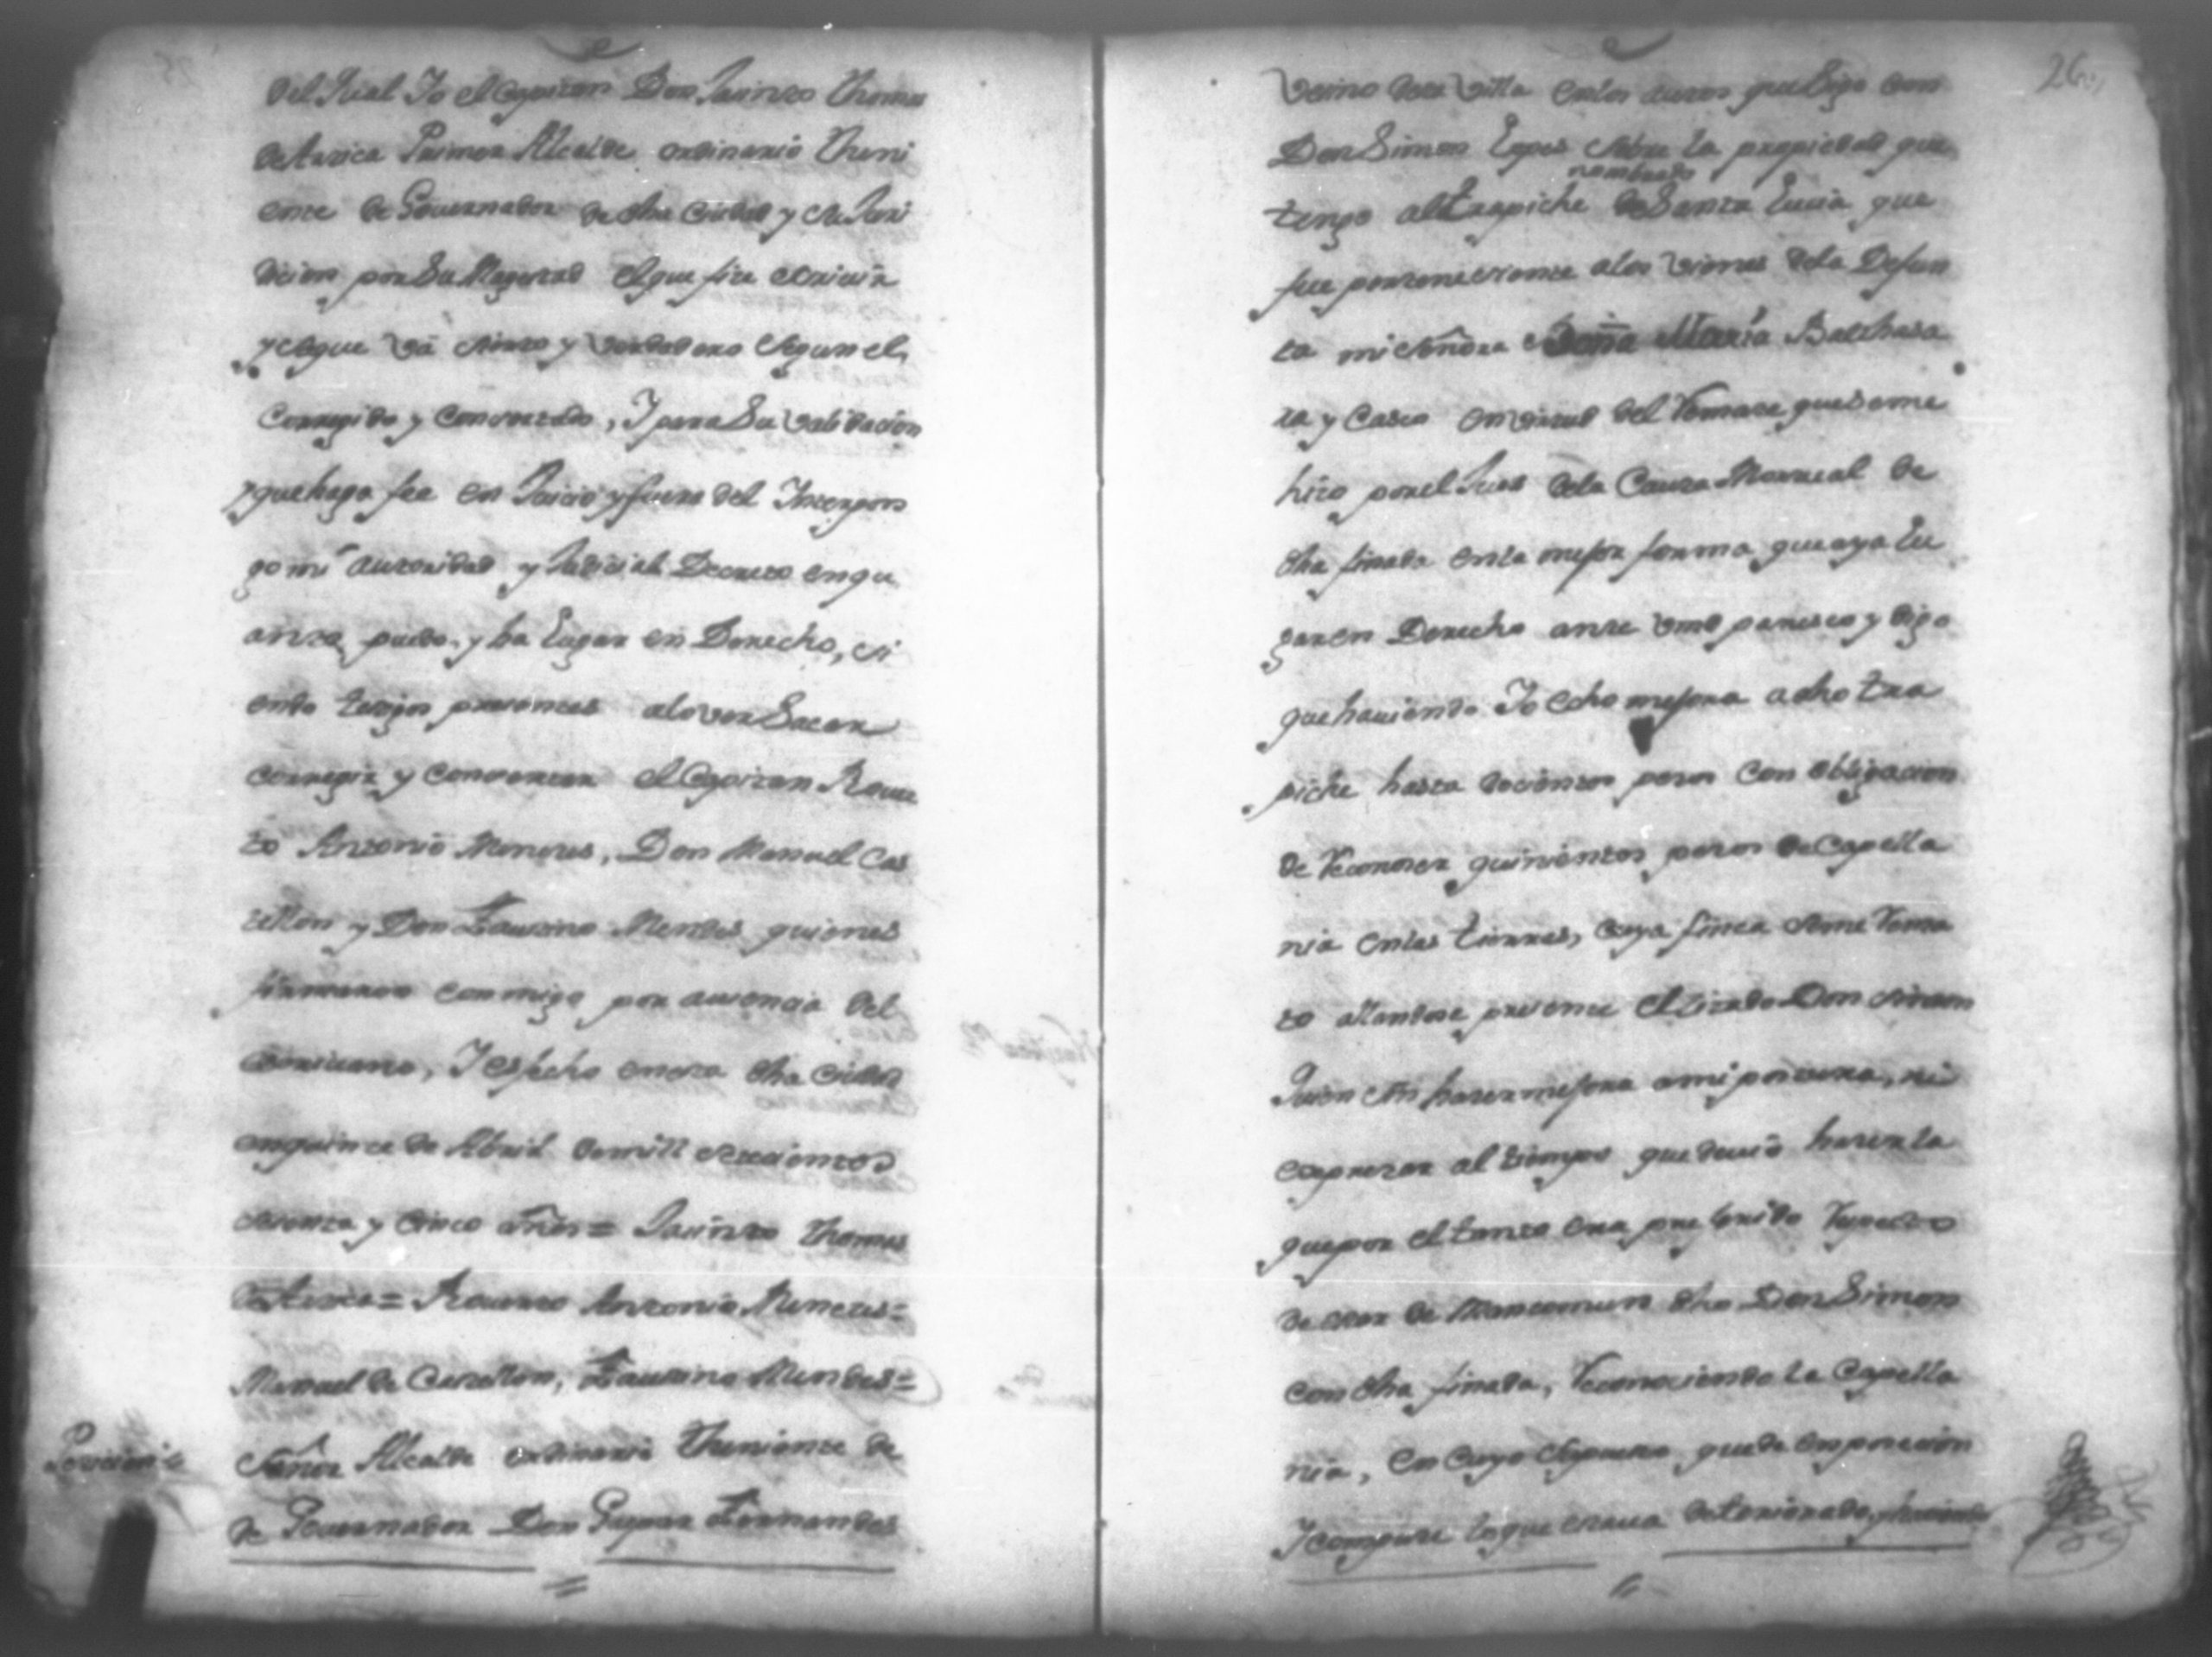 del Real Yo el Capitan Don Jacinto Thomas
de Arrica Primer Alcalde ordinario Theni
ente de Governador de dha Ciudad y su Juri
dicion por Su Magestad el que fise escrivir
y elque va sierto y verdadero segun el
Corregido y Consertado, Y para Su validacion
y que haga fee en Juicio y fuera del Interpon
go mi autoridad y Judicial Decreto en qu
anto puedo y ha lugar en Derecho, si
endo testigos presentes alo ver Sacar
corregir y consertar el Capitan
to Antonio Meneses, Don Manuel Cas
tellon y Don Faustino Mendes quienes
firmaron conmigo por ausencia del
escrivano, Y es fecho en esta dha ciudad
en quince de Abril de mill setecientos
sesenta y cinco años = Jacinto Thomas
de Arrica = Antonio Meneses =
Manuel de Castellon, Faustino Mendes =
Peticion
Señor Alcalde ordinario Theniente de
de Governador Don Gaspar Fernandes
26
vecino desta villa en los autos que sigo con
Don Simon Lopes sobre la propiedad que
tengo al trapiche nombrado de Santa Lucia que
fue perteneciente a los vienes dela Defun
ta mi señora Doña Maria Balthasa
ra y Casco en virtud del Remate que se me
hizo por el Jues dela Causa Mortual de
dha finada en la mejor forma que aya lu
gar en Derecho ante vmd paresco y digo
que haviendo Yo echo mejora a dho tra
piche hasta docientos pesos con obligacion
de Reconoser quinientos pesos de Capella
nia en las tierras, cuya finca se me Rema
to allandose presente el sitado Don Simon
quien sin haser mejora a mi postura, ni
expresar al tiempo que devio haserla
que por el tanto era preferido Respecto
de estar de Mancomun dho Don Simon
con dha finada, Reconociendo la Capella
nia, en cuyo supuesto quede en posecion
Y compuse lo que estava deteriorado, y haviendo